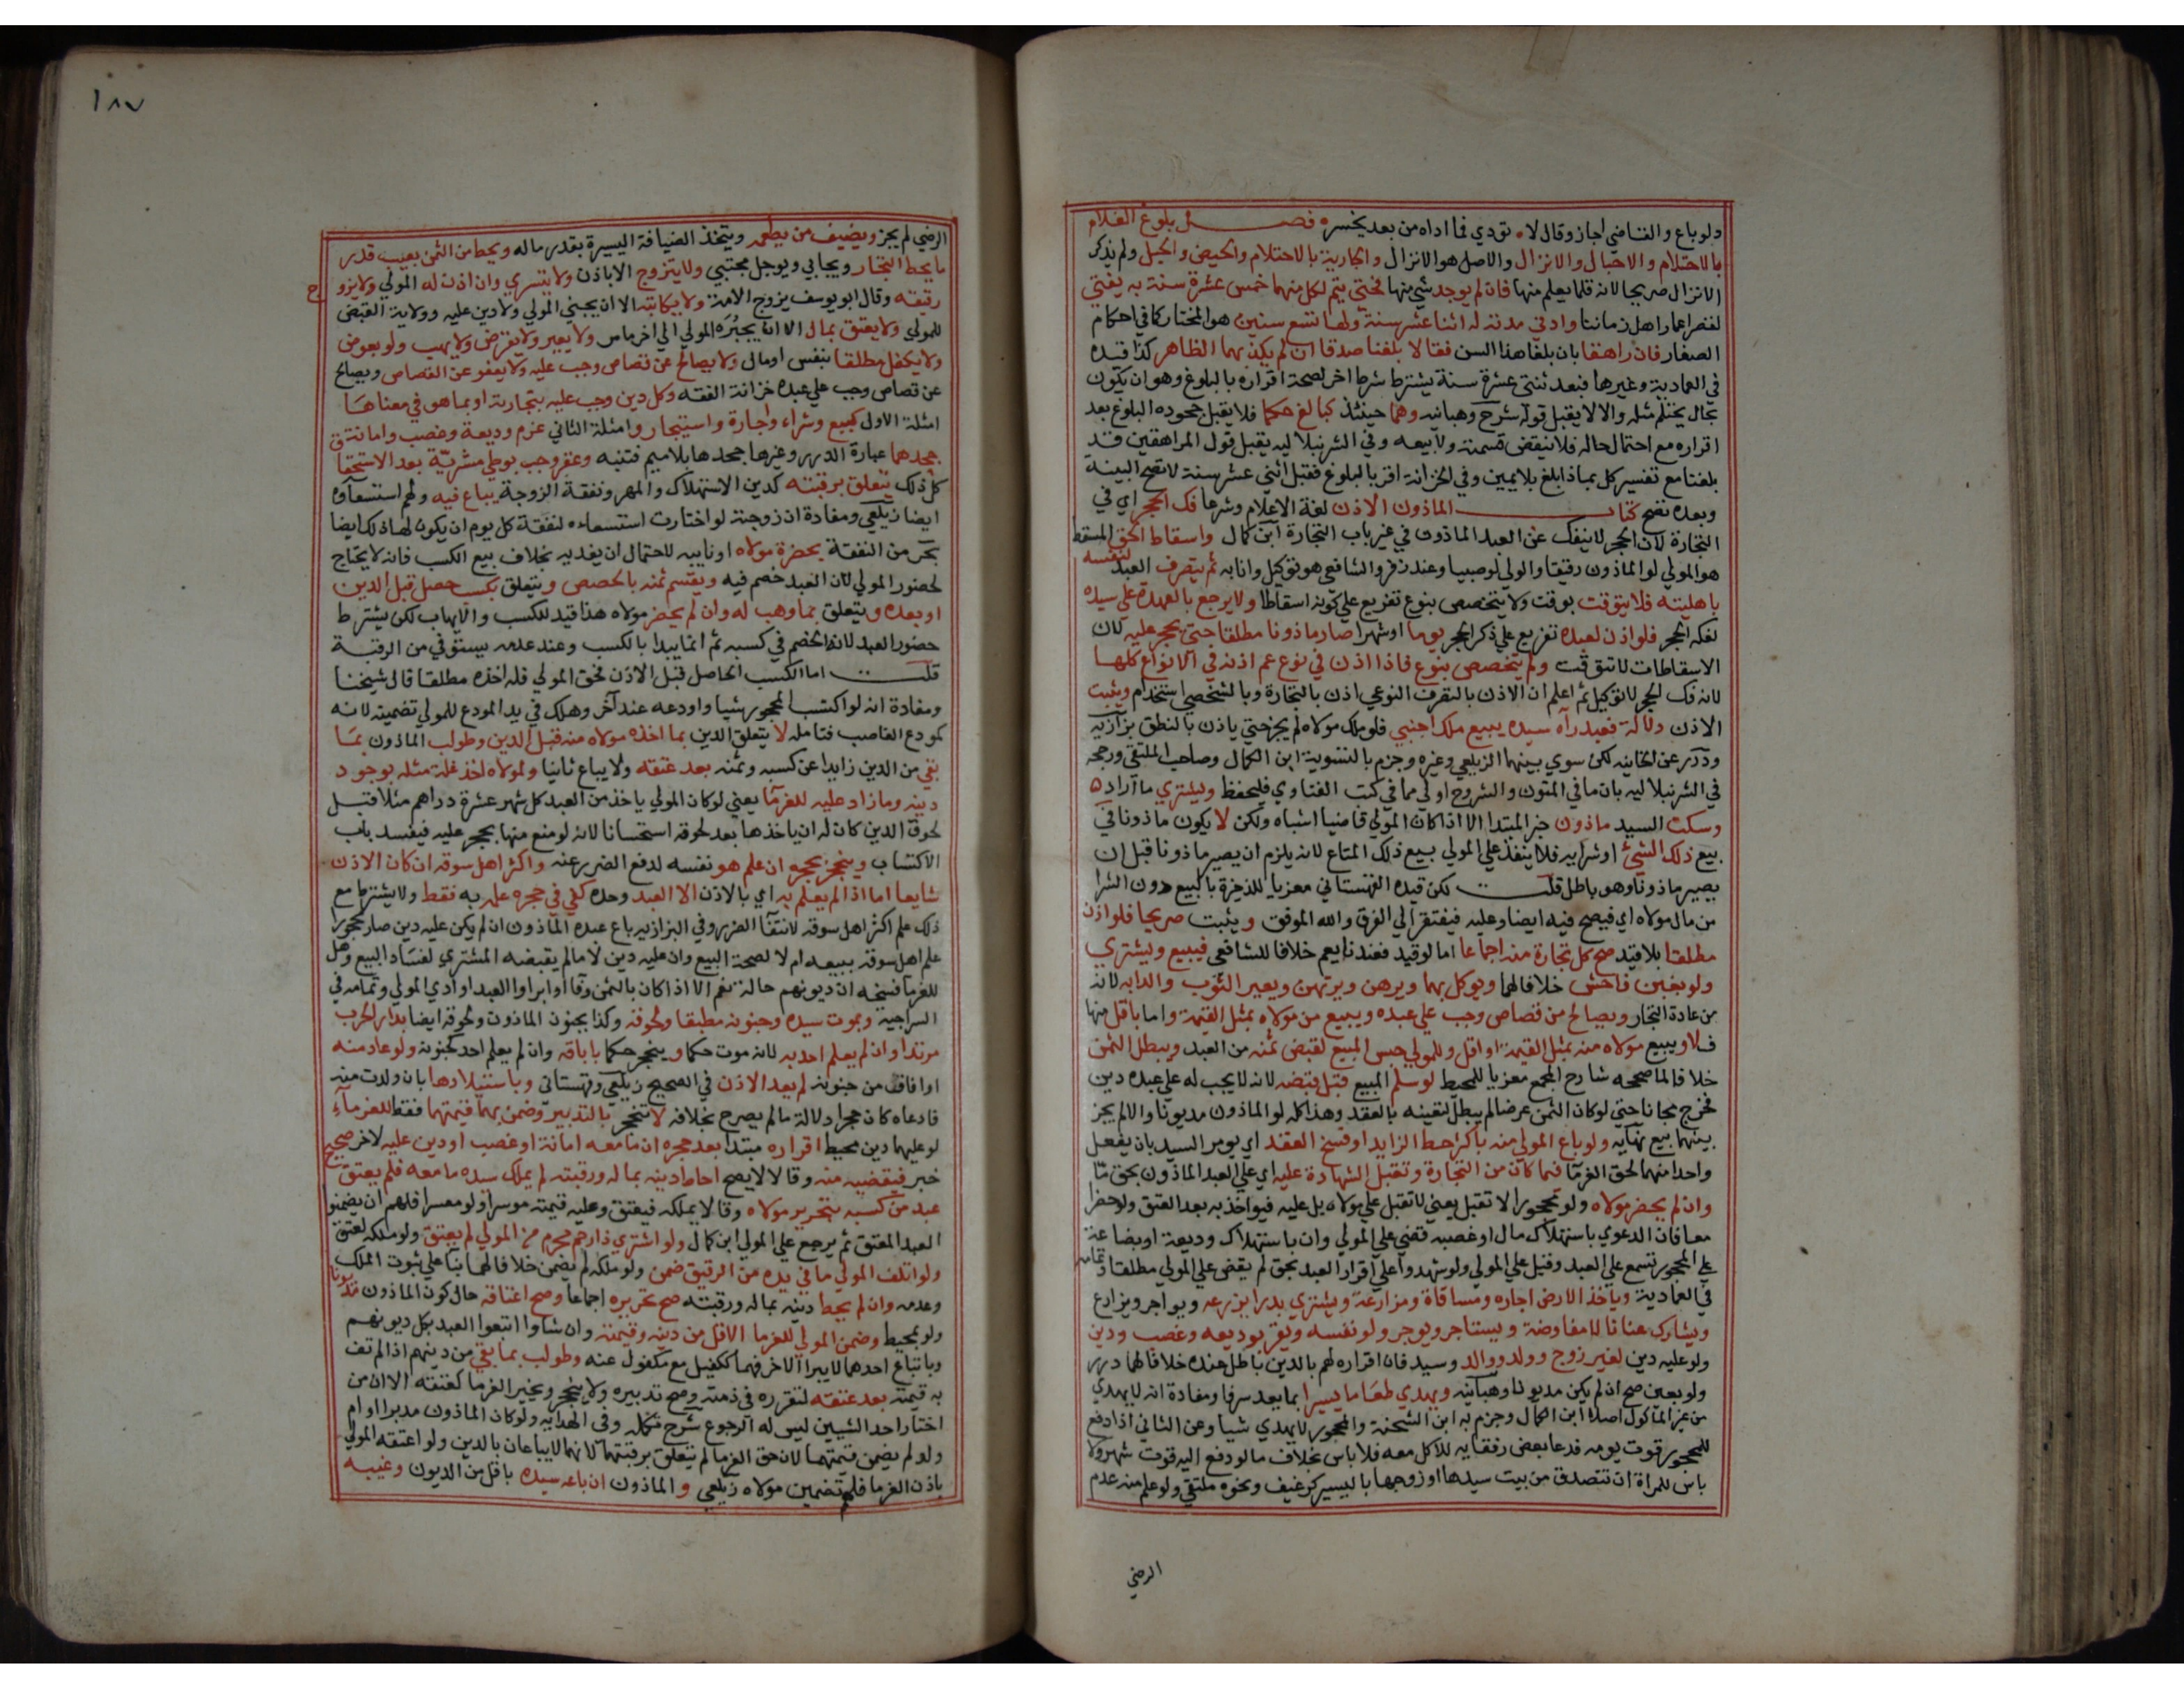 ولو باع والقاضي اجاز وقال لا، تؤدي فما اداه من بعد يخسره فصل بلوغ الغلام
بالاحتلام والاحبال والانزال والاصل هو الانزال والجارية بالاحتلام والحيض والحبل ولم يذكر
الانزال صريحا لانه قلما يعلم منها فان لم يوجد شي منهما فحتي يتم لكل منهما خمس عشرة سنة به يفتي
لقصر اعمار اهل زماننا وادني مدته له اثنتا عشر سنة ولها تسع سنين هو المختار كما في احكام
الصغار فان راهقا بان بلغا هذا السن فقالا بلغنا صدقا ان لم يكذبهما الظاهر كذا قيده
في العمادية وغيرها فبعد ثنتي عشرة سنة يشترط شرط اخر لصحة اقراره بالبلوغ وهو ان يكون
بحال يحتلم مثله والا لا يقبل قوله شرح وهبانيه وهما حينئذ كبالغ حكما فلا يقبل جحوده البلوغ بعد
اقراره مع احتمال حاله فلا تنقض قسمته ولا بيعه وفي الشرنبلاليه يقبل قول المراهقين قد
بلغنا مع تفسير كل بماذا بلغ بلا يمين وفي الخزانة اقر بالبلوغ فقبل اثني عشر سنة لا تصح البينة
وبعده تصح كتاب الماذون الاذن لغة الاعلام وشرعا فك الحجر اي في
التجارة لان الحجر لا ينفك عن العبد الماذون في غير باب التجارة ابن كمال واسقاط الحق المسقط
هو المولي لو الماذون رقيقا والولي لو صبيا وعند زفر والشافعي هو توكيل وانابه ثم يتصرف العبد لنفسه
باهليته فلا يتوقت بوقت ولا يتخصص بنوع تفريع علي كونه اسقاطا ولا يرجع بالعهدة علي سيده
لفكه الحجر فلو اذن لعبده تفريع علي ذكر الحجر يوما او شهرا صار ماذونا مطلقا حتي يحجر عليه لان
الاسقاطات لا تتوقت ولم يتخصص بنوع فاذا اذن في نوع عم اذنه في الانواع كلها
لانه فك الحجر لا توكيل ثم اعلم ان الاذن بالتصرف النوعي اذن بالتجارة وبالشخصي استخدام ويثبت
الاذن دلالة فعبد رآه سيده يبيع ملك اجنبي فلو ملك مولاه لم يجز حتي ياذن بالنطق بزازيه
ودرر عن الخانيه لكن سوي بينهما الزيلعي وغيره وجزم بالتسوية ابن الكمال وصاحب الملتقي ورجحه
في الشرنبلاليه بان ما في المتون والشروح اولي مما في كتب الفتاوي فليحفظ ويشتري ما اراده
وسكت السيد ماذون خبر المبتدا الا اذا كان المولي قاضيا اشباه ولكن لا يكون ماذونا في
بيع ذلك الشئ او شرايه فلا ينفذ علي المولي بيع ذلك المتاع لانه يلزم ان يصير ماذونا قبل ان
يصير ماذونا وهو باطل قلت لكن قيده القهستاني معزيا للذخيرة بالبيع دون الشرا
من مال مولاه اي فيصح فيه ايضا وعليه فيفتقر الي الفرق والله الموفق ويثبت صريحا فلو اذن
مطلقا بلا قيد صح كل تجارة منه اجماعا اما لو قيد فعندنا يعم خلافا للشافعي فيبيع ويشتري
ولو بغبن فاحش خلافا لهما ويوكل بهما ويرهن ويرتهن ويعير الثوب والدابه لانه
من عادة التجار ويصالح من قصاص وجب علي عبده ويبيع من مولاه بمثل القيمة واما باقل منها
فلا ويبيع مولاه منه بمثل القيمة او اقل وللمولي حبس المبيع لقبض ثمنه من العبد ويبطل الثمن
خلافا لما صححه شارح المجمع معزيا للمحيط لو سلم المبيع قبل قبضه لانه لا يجب له علي عبده دين
فخرج مجانا حتي لو كان الثمن عرضا لم يبطل لتعينه بالعقد وهذا كله لو الماذون مديونا والا لم يجز
بينهما بيع نهايه ولو باع المولي منه باكثر حط الزايد او فسخ العقد اي يومر السيد بان يفعل
واحدا منهما لحق الغرما فيما كان من التجارة وتقبل الشهادة عليه اي علي العبد الماذون بحق ما
وان لم يحضر مولاه ولو محجورا لا تقبل يعني لا تقبل علي مولاه بل عليه فيواخذ به بعد العتق ولو حضرا
معا فان الدعوي باستهلاك مال او غصبه قضي علي المولي وان باستهلاك وديعة او بضاعة
علي المحجور تسمع علي العبد وقيل علي المولي ولو شهدوا علي اقرار العبد بحق لم يقض علي المولي مطلقا وتمامه
في العمادية وياخذ الارض اجاره ومساقاة ومزارعة ويشتري بذرا يزرعه ويواجر ويزارع
ويشارك عنانا لا مفاوضة ويستاجر ويوجر ولو نفسه ويقر بوديعه وغصب ودين
ولو عليه دين لغير زوج وولد ووالد وسيد فان اقراره لهم بالدين باطل عنده خلافا لهما درر
ولو بعين صح ان لم يكن مديونا وهبانيه ويهدي طعاما يسيرا بما يعد سرفا ومفادة انه لا يهدي
من غير الماكول اصلا ابن الكمال وجزم به ابن الشحنة والمحجور لا يهدي شيا وعن الثاني اذا دفع
للمحجور قوت يومه فدعا بعض رفقايه للاكل معه فلا باس بخلاف ما لو دفع اليه قوت شهر ولا
باس للمراة ان تتصدق من بيت سيدها او زوجها باليسير كرغيف ونحوه ملتقي ولو علم منه عدم
الرضي
١٨٧
الرضي لم يجز ويضيف من يطعمه ويتخذ الضيافة اليسيرة بقدر ماله ويحط من الثمن بعيب قدر
ما يحط التجار ويحابي ويوجل مجتبي ولا يتزوج الا باذن ولا يتسري وان اذن له المولي ولا يزوج
رقيقه وقال ابو يوسف يزوج الامة ولا يكاتبه الا ان يجيزه المولي ولا دين عليه وولاية القبض
للمولي ولا يعتق بمال الا ان يجيزه المولي الي اخر ما مر ولا بغير ولا يقرض ولا يهب ولو بعوض
ولا يكفل مطلقا بنفس او مال ولا يصالح عن قصاص وجب عليه ولا يعفو عن القصاص ويصالح
عن قصاص وجب علي عبده خزانة الفقه وكل دين وجب عليه بتجارته او بما هو في معناها
امثلة الاول كبيع وشراء واجارة واستيجار وامثلة الثاني غرم وديعة وغصب وامانة
جحدهما عبارة الدرر وغيرها جحدها بلا ميم فتنبه وعقر وجب بوطي مشريّة بعد الاستحقاق
كل ذلك يتعلق برقبته كدين الاستهلاك والمهر ونفقة الزوجة يباع فيه ولهم استسعاؤه
ايضا زيلعي ومفادة ان زوجته لو اختارت استسعاءه لنفقة كل يوم ان يكون لها ذلك ايضا
بحر من النفقة بحضرة مولاه او نايبه لاحتمال ان يفديه بخلاف بيع الكسب فانه لا يحتاج
لحضور المولي لان العبد خصم فيه ويقسم ثمنه بالحصص ويتعلق بكسب حصل قبل الدين
او بعده ويتعلق بما وهب له وان لم يحضر مولاه هذا قيد للكسب والايهاب لكن يشترط
حضور العبد لانه الخصم في كسبه ثم انما يبدا بالكسب وعند عدمه يستوفي من الرقبة
قلت اما الكسب الحاصل قبل الاذن فحق المولي فله اخذه مطلقا قال شيخنا
ومفادة انه لو اكتسب المحجور شيا واودعه عند آخر وهلك في يد المودع للمولي تضمينه لانه
كمودع الغاصب فتامله لا يتعلق الدين بما اخذه مولاه منه قبل الدين وطولب الماذون بما
بقي من الدين زايدا عن كسبه وثمنه بعد عتقه ولا يباع ثانيا ولمولاه اخذ غلة مثله بوجود
دينه وما زاد عليه للغرما يعني لو كان المولي ياخذ من العبد كل شهر عشرة دراهم مثلا قبل
لحوق الدين كان له ان ياخذها بعد لحوقه استحسانا لانه لو منع منها يحجر عليه فيفسد باب
الاكتساب وينحجر بحجره ان علم هو نفسه لدفع الضرر عنه واكثر اهل سوقه ان كان الاذن
شايعا اما اذا لم يعلم به اي بالاذن الا العبد وحده كفي في حجره علمه به فقط ولا يشترط مع
ذلك علم اكثر اهل سوقه لانتفا الضرر وفي البزازيه باع عبده الماذون ان لم يكن عليه دين صار محجورا
علم اهل سوقه ببيعه ام لا لصحة البيع وان عليه دين لا ما لم يقبضه المشتري لفساد البيع وهل
للغرما فسخه ان ديونهم حالة نعم الا اذا كان بالثمن وفا او ابراوا العبد او ادي المولي وتمامه في
السراجية وبموت سيده وجنونه مطبقا ولحوقه وكذا بجنون الماذون ولحوقه ايضا بدار الحرب
مرتدا وان لم يعلم احد به لانه موت حكما وينحجر حكما باباقه وان لم يعلم احد كجنونه ولو عاد منه
او افاق من جنونه لم يعد الاذن في الصحيح زيلعي وقهستاني وباستيلادها بان ولدت منه
فادعاه كان حجرا دلالة ما لم يصرح بخلافه لا تنحجر بالتدبير وضمن بهما قيمتهما فقط للغرماء
لو عليهما دين محيط اقراره مبتدا بعد حجره ان ما معه امانة او غصب او دين عليه لاخر صحيح
خبر فيقضيه منه وقالا لا يصح احاط دينه بماله ورقبته لم يملك سيده ما معه فلم يعتق
عبد من كسبه بتحرير مولاه وقالا يملكه فيعتق وعليه قيمته موسرا ولو معسرا فلهم ان يضمنوا
العبد المعتق ثم يرجع علي المولي ابن كمال ولو اشتري ذا رحم محرم من المولي لم يعتق ولو ملكه لعتق
ولو اتلف المولي ما في يده من الرقيق ضمن ولو ملكه لم يضمن خلافا لهما بنا علي ثبوت الملك
وعدمه وان لم يحط دينه بماله ورقبته صح تحريره اجماعا وصح اعتاقه حال كون الماذون مديونا
ولو بمحيط وضمن المولي للغرما الاقل من دينه وقيمته وان شاوا اتبعوا العبد بكل ديونهم
وباتباع احدهما لا يبرا الاخر فهما ككفيل مع مكفول عنه وطولب بما بقي من دينهم اذا لم تف
به قيمته بعد عتقه لتقرره في ذمته وصح تدبيره ولا ينحجر ويخير الغرما كعتقه الا ان من
اختار احد الشيين ليس له الرجوع شرح تكمله وفي الهدايه ولو كان الماذون مدبرا او ام
ولد لم يضمن قيمتهما لان حق الغرما لم يتعلق برقبتهما لانهما لا يباعان بالدين ولو اعتقه المولي
باذن الغرما فلهم تضمين مولاه زيلعي والماذون ان باعه سيده باقل من الديون وغيبه